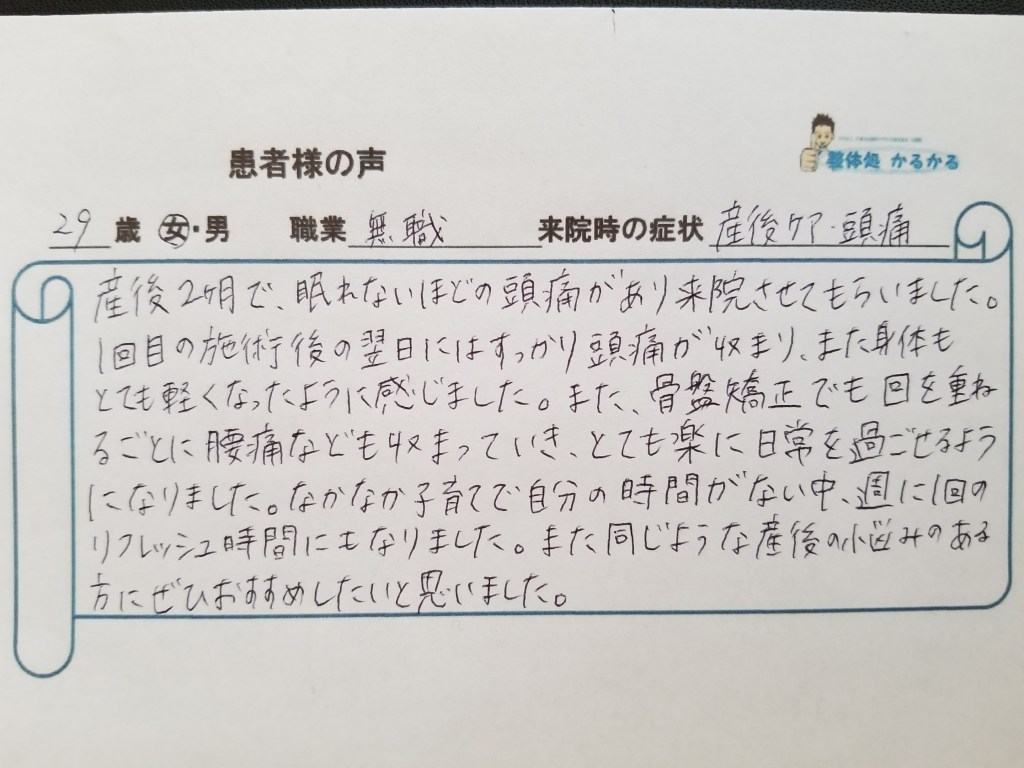 患者様の声
整体処 かるかる
29歳 女・男 職業 無職 来院時の症状 産後ケア・頭痛
産後2ヶ月で、眠れないほどの頭痛があり来院させてもらいました。
1回目の施術後の翌日にはすっかり頭痛が収まり、また身体も
とても軽くなったように感じました。また、骨盤矯正でも回を重ね
るごとに腰痛なども収まっていき、とても楽に日常を過ごせるよう
になりました。なかなか子育てで自分の時間がない中、週に1回の
リフレッシュ時間にもなりました。また同じような産後の悩みのある
方にぜひおすすめしたいと思いました。